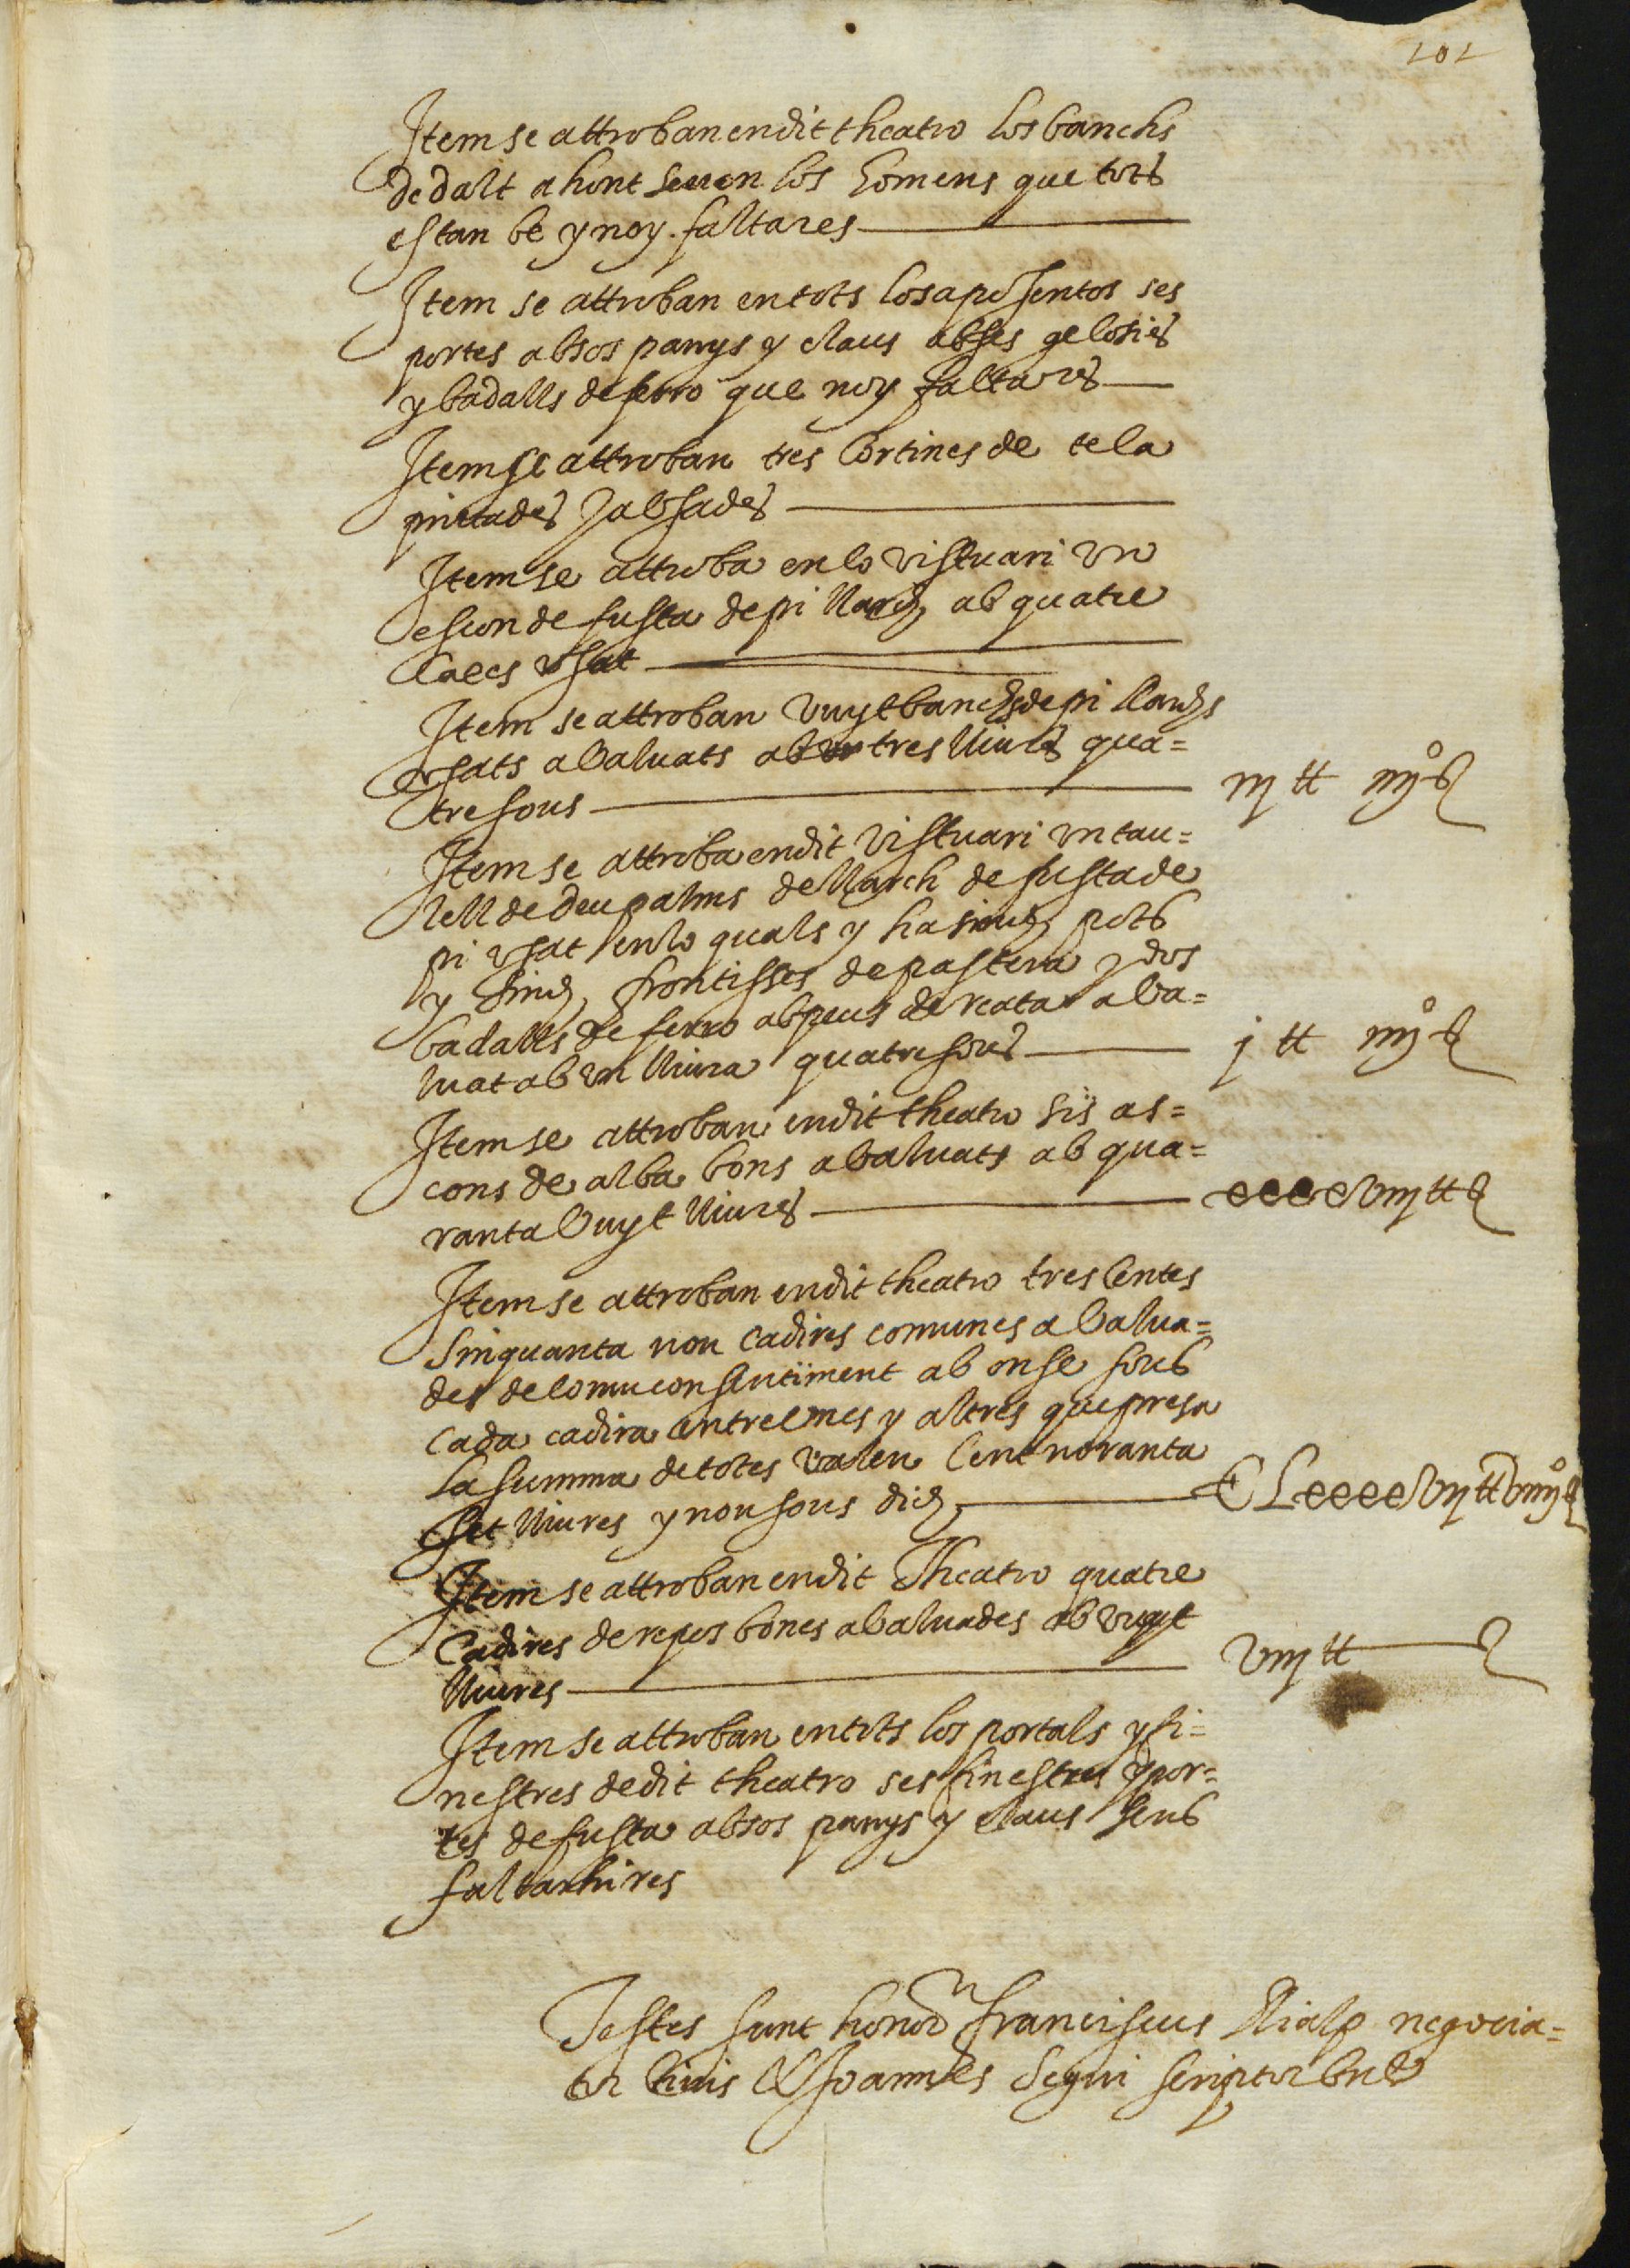 101
Item se attroban en dit theatro los banchs
de dalt ahont seuen los homens que tots
estan be y noy faltares
Item se attroban en tots los aposentos ses
portes ab sos panys y claus ab ses gelosies
y badalls de ferro que noy faltares
Item se attroban tres cortines de tela
pintades
Item se attroba en lo vistuari un
escon de fusta de pi llarch ab quatre
caxes usat
Item se attroban vuyt banchs de pi llarchs
usats avaluats ab tres lliures qua=
tre sous
iij tt iiijº ß
Item se attroba en dit vistuari un tau=
lell de deu palms de llarch de fusta de
pi usat en lo quals y ha sinch pots
y sinch frontisses de pastera y dos
badalls de ferro ab peus de reata ava=
luat ab un lliura quatre sous
j tt iiijº ß
Item se attroban en dit theatro sis as=
cons de alba bons avaluats ab qua=
ranta vuyt lliures
xxxxviij tt ß
Item se attroban en dit theatro tres centes
sinquanta nou cadires comunes avalua=
des de comu consentiment ab onse sous
cada cadira entre unes y altres que presa
la summa de totes valen cent noranta
set lliures y nou sous dich
CLxxxxvij tt viiijº ß
Item se attroban en dit Theatro quatre
cadires de repos bones avaluades ab vuyt
lliures
viij tt ß
Item se attroban en tots los portals y fi=
nestres de dit theatro ses finestres y por=
tes de fusta ab sos panys y claus sens
faltarhi res
Testes sunt honor franciscus Rialp negocia=
tor civis & Joannes Segui scriptor